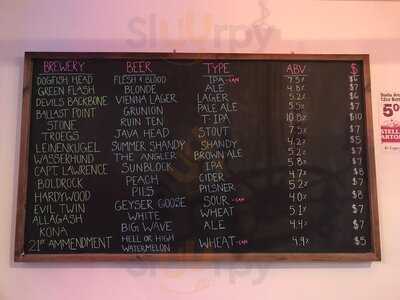 BREWERY BEER TYPE ABV $
DOGFISH HEAD FLESH & BLOOD IPA -CAN 7.5% $6
GREEN FLASH BLONDE ALE 4.8% $7
DEVILS BACKBONE VIENNA LAGER LAGER 5.2% $6
BALLAST POINT GRUNION PALE ALE 5.5% $7
STONE RUIN TEN T-IPA 10.8% $10
TROEGS JAVA HEAD STOUT 7.5% $7
LEINENKUGEL SUMMER SHANDY SHANDY 4.2% $5
WASSERHUND THE ANGLER BROWN ALE 5.2% $7
CAPT LAWRENCE SUNBLOCK IPA 5.8% $7
BOLDROCK PEACH CIDER 4.7% $8
HARDYWOOD PILS PILSNER 5.2% $7
EVIL TWIN GEYSER GOOSE SOUR -CAN 4.0% $8
ALLAGASH WHITE WHEAT 5.1% $7
KONA BIG WAVE ALE 4.4% $7
21ST AMMENDMENT HELL OR HIGH WATERMELON WHEAT -CAN 4.9% $5
Stella Ar
12oz Bott
5
STELL
ARTO